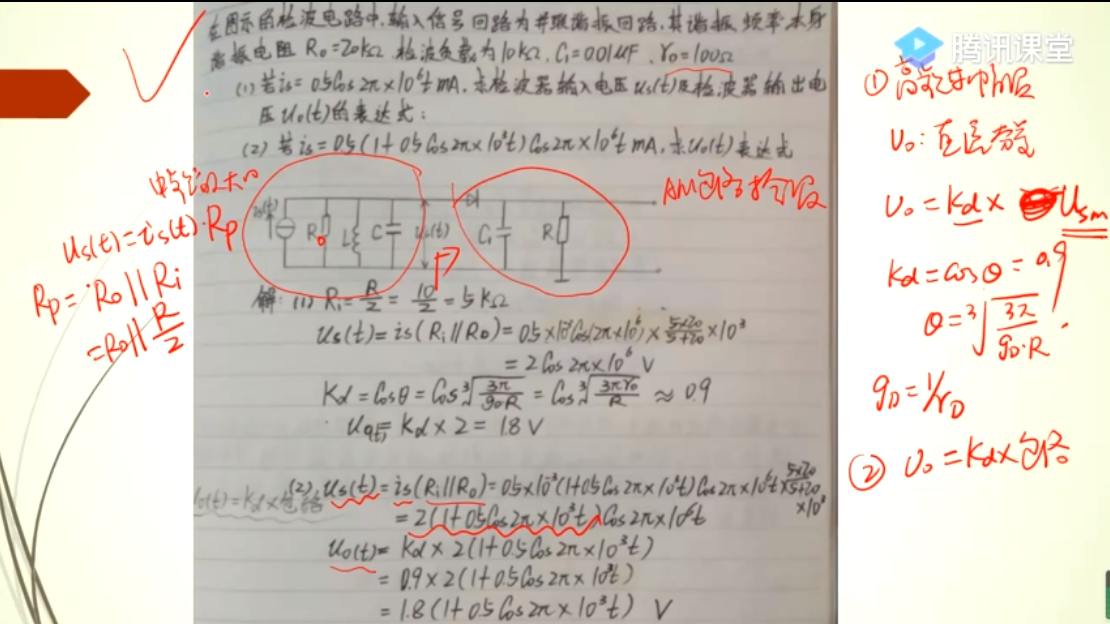 在图示的检波电路中,输入信号回路为并联谐振回路,其谐振频率本身
谐振电阻 R₀=20kΩ 检波负载为10kΩ, C₁=0.01μF, r₀=100Ω
(1) 若is=0.5Cos2π×10⁶t mA, 求检波器输入电压us(t)及检波器输出电
压U₀(t)的表达式;
(2) 若is=0.5(1+0.5Cos2π×10³t)Cos2π×10⁶t mA,求U₀(t)表达式
is(t)
R₀
L
C
us(t)
C₁
R
解: (1) Ri=R/2=10/2=5kΩ
us(t)=is(Ri//R₀)=0.5×10⁻³Cos(2π×10⁶)×(5×20)/(5+20)×10³
=2Cos2π×10⁶ V
Kd=Cosθ=Cos∛(3π/(g₀R))=Cos∛(3πr₀/R)≈0.9
U₀(t)=Kd×2=1.8V
(2) us(t)=is(Ri//R₀)=0.5×10⁻³(1+0.5Cos2π×10³t)Cos2π×10⁶t×(5×20)/(5+20)×10³
=2(1+0.5Cos2π×10³t)Cos2π×10⁶t
u₀(t)=Kd×2(1+0.5Cos2π×10³t)
=0.9×2(1+0.5Cos2π×10³t)
=1.8(1+0.5Cos2π×10³t) V
U₀(t)=Kd×包络
us(t)=is(t)·Rp
Rp=R₀//Ri
=R₀//R/2
AM包络检波
腾讯课堂
①
U₀:直流
U₀=Kd×Usm
Kd=cosθ=0.9
θ=∛(3π/(gD·R))
gD=1/rD
② U₀=Kd×包络